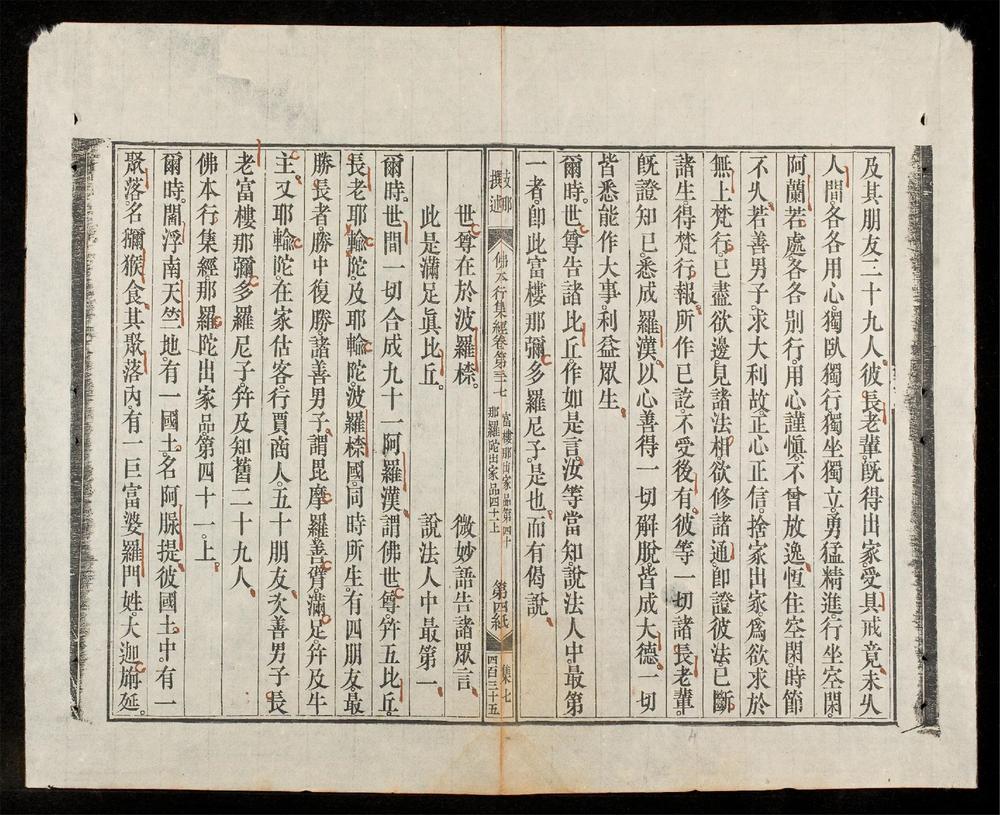 及其朋友二十九人。彼長老輩。旣得出家。受具戒竟。未久
人間各各用心。獨臥獨行獨坐獨立。勇猛精進。行坐空閑。
阿蘭若處。各各別行。用心謹愼。不曾放逸。恆住空閑。時節
不久。若善男子。求大利故。正心正信。捨家出家。爲欲求於
無上梵行。已盡欲邊。見諸法相。欲修諸通。卽證彼法。已斷
諸生得梵行報。所作已訖。不受後有。彼等一切諸長老輩。
旣證知已。悉成羅漢。以心善得一切解脫。皆成大德。一切
皆悉能作大事利益眾生。
爾時。世尊告諸比丘。作如是言。汝等當知。說法人中。最第
一者。卽此富樓那彌多羅尼子。是也。而有偈說。
世尊在於波羅㮈。 微妙語告諸眾言
此是滿足眞比丘。 說法人中最第一
爾時。世間一切合成九十一阿羅漢。謂佛世尊。幷五比丘。
長老耶輸陀。及耶輸陀。波羅㮈國。同時所生。有四朋友。最
勝長者。勝中復勝。諸善男子。謂毘摩羅善臂。滿足。幷及牛
主。又耶輸陀。在家估客。行賈商人。五十朋友。次善男子。長
老富樓那彌多羅尼子。幷及知舊二十九人。
佛本行集經。那羅陀出家品第四十一。上。
爾時。閻浮南天竺地。有一國土。名阿槃提。彼國土中。有一
聚落。名獼猴食。其聚落內。有一巨富婆羅門姓。大迦旃延。
撰述
佛本行集經卷第三十七
富樓那出家品第四十
那羅陀出家品四十一上
第四紙
集七
四百三十五